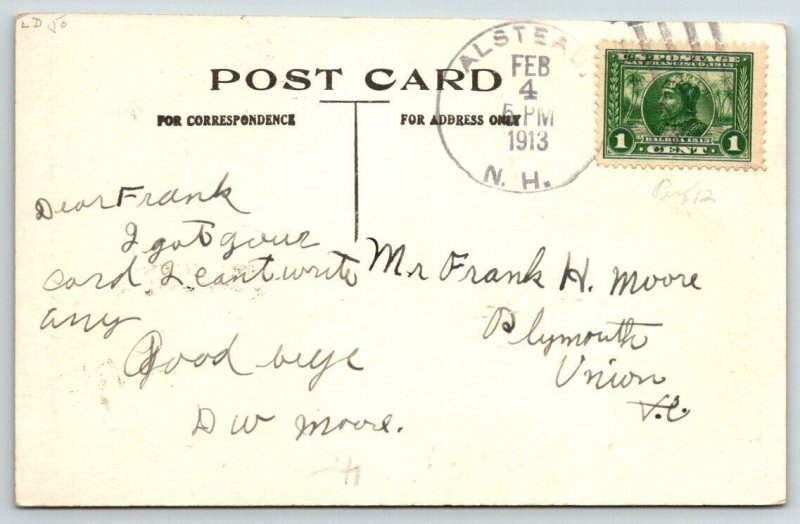 LD 50
POST CARD
FOR CORRESPONDENCE
FOR ADDRESS ONLY
ALSTEAD
FEB
4
5 PM
1913
N. H.
U.S. POSTAGE
SAN FRANCISCO, 1915
BALBOA 1513
1 CENT 1
Perf 12
Dear Frank
I got your
card. I cant write
any
Good bye
D W Moore.
Mr Frank H. Moore
Plymouth
Union